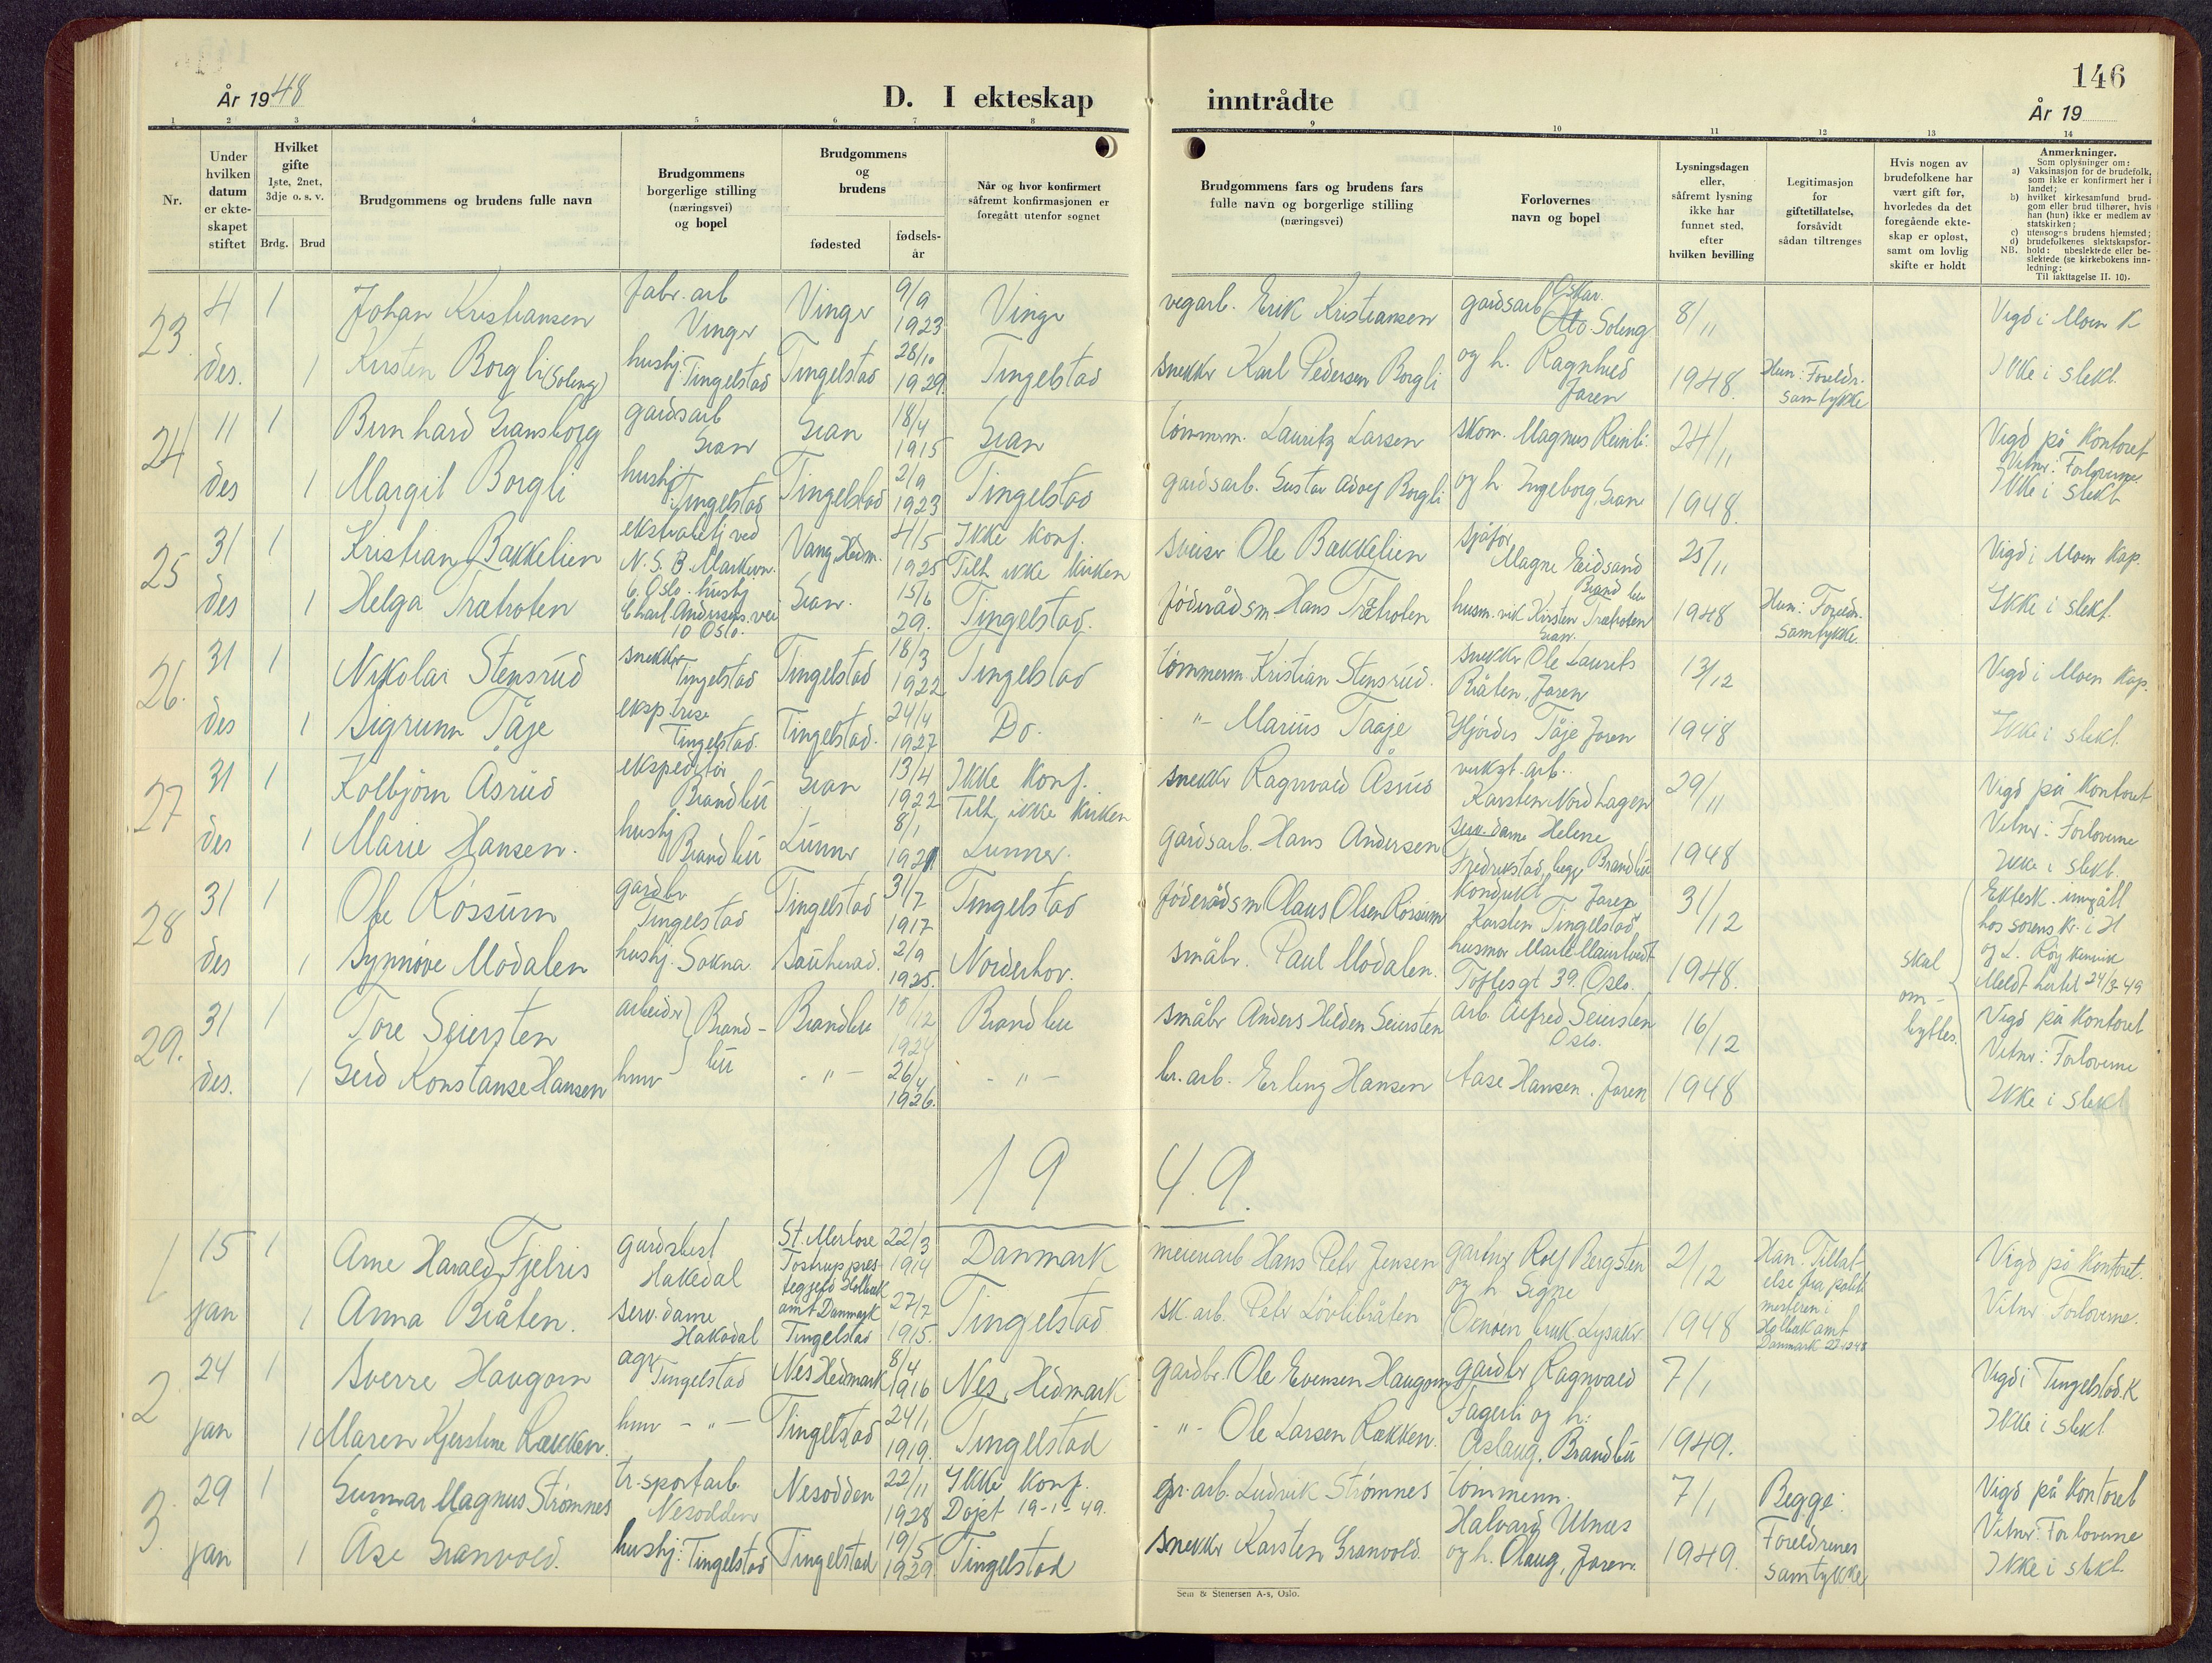 146
År 1948
D. I ekteskap inntrådte
År 19
1 2 3 4 5 6 7 8 9 10 11 12 13 14
Nr.
Under hvilken datum er ekte-skapet stiftet
Hvilket gifte 1ste, 2net, 3dje o. s. v.
Brdg. Brud
Brudgommens og brudens fulle navn
Brudgommens borgerlige stilling (næringsvei) og bopel
Brudgommens og brudens
fødested
fødsels-år
Når og hvor konfirmert såfremt konfirmasjonen er foregått utenfor sognet
Brudgommens fars og brudens fars fulle navn og borgerlige stilling (næringsvei)
Forlovernes navn og bopel
Lysningsdagen eller, såfremt lysning ikke har funnet sted, efter hvilken bevilling
Legitimasjon for giftetillatelse, forsåvidt sådan tiltrenges
Hvis nogen av brudefolkene har vært gift før, hvorledes da det foregående ekte-skap er opløst, samt om lovlig skifte er holdt
Anmerkninger.
Som oplysninger om:
a) Vaksinasjon for de brudefolk, som ikke er konfirmert her i landet;
b) hvilket kirkesamfund brud-gom eller brud tilhører, hvis han (hun) ikke er medlem av statskirken;
c) utensogns brudens hjemsted;
d) brudefolkenes slektskapsfor-hold: ubeslektede eller be-slektede (se kirkebokens inn-ledning:
NB. Til iakttagelse II. 10).
23 4 des. 1 Johan Kristiansen fabr. arb Vinger Vinger 9/9 1923 Vinger vegarb. Erik Kristiansen gardsarb Oskar Soleng 8/11 Vigd i Moen K
1 Kirsten Borgli (Soleng) hushj. Tingelstad Tingelstad 28/10 1929. Tingelstad snekker Karl Pedersen Borgli og h. Ragnhild Jaren 1948. Hun: Foreldr. samtykke Ikke i slekt.
24 11 des 1 Bernhard Gransborg gardsarb Gran Gran 18/4 1915 Gran tømmerm. Lauritz Larsen skom. Magnus Reinli 24/11 Vigd på Kontoret Vitner: Forloverne
1 Margit Borgli hushj. Tingelstad Tingelstad 2/9 1923 Tingelstad gardsarb. Gustav Adolf Borgli og h Ingeborg, Gran 1948. Ikke i slekt
25 31 des 1 Kristian Bakkelien ekstrabetj ved N. S. B. Vang, Hedm. 4/5 1925 Ikke konf. Tilh. ikke kirken sveiser Ole Bakkelien sjåfør Magne Eidsand Brandbu 25/11 Vigd i Moen Kap.
1 Helga Trætroten hushj Charl. Andersens vei 10 Oslo. Gran. 15/6 29. Tingelstad. føderådsm. Hans Trætroten husm. vik Kirsten Trætroten Gran. 1948 Hun: Foreldr. samtykke. Ikke i slekt.
26. 31 des 1 Nikolai Stensrud snekker Tingelstad Tingelstad 18/3 1922 Tingelstad tømmerm Kristian Stensrud. snekker Ole Laurits Bråten, Jaren 13/12 Vigd i Moen Kap.
1 Sigrunn Tåje eksp.trise Tingelstad. Tingelstad. 24/4 1927 Do. - " - Marius Taaje Hjørdis Tåje Jaren 1948 Ikke i slekt.
27 31 des 1 Kolbjørn Åsrud ekspeditør Brandbu Gran 13/4 1922 Ikke konf. Tilh. ikke kirken snekker Ragnvald Åsrud verkst. arb. Karsten Nordhagen 29/11 Vigd på Kontoret
1 Marie Hansen. hushj Brandbu Lunner 8/1 1921 Lunner. gardsarb. Hans Andersen serv. dame Helene Fredrikstad, begge Brandbu 1948 Vitner: Forloverne Ikke i slekt.
28 31 des 1 Ole Røssum gardbr Tingelstad Tingelstad 31/7 1917 Tingelstad føderådsm Olaus Olsen Røssum kondukt Jaren Karsten Tingelstad 31/12 Ektesk. inngått hos sorenskr. i H og L. Meldt hertil 24/3-49
1 Synnøve Modalen hushj. Sokna Sauherad. 2/9 1925. Norderhov. småbr. Paul Modalen. husmor Toftesgt 39. Oslo. 1948. skal om-byttes.
29. 31 des. 1 Tore Seiersten arbeider Brandbu Brandbu 10/12 1924 Brandbu småbr Anders Hilden Seiersten arb Alfred Seiersten Oslo. 16/12 Vigd på Kontoret Vitner: Forloverne
1 Gerd Konstanse Hansen hmv - " - 26/4 1926. - " - br. arb. Erling Hansen Aase Hansen. Jaren 1948 Ikke i slekt
19 49.
1 15 jan 1 Arne Harald Fjelris gårdsbest Hakedal St. Merløse Tostrup prestegjeld Holbæk amt Danmark 22/3 1914 Danmark meieriarb Hans Peter Jensen gartner Rolf Bergsten og h Signe 2/12 Han. Tillatelse fra politimesteren i Holbæk amt Danmark Vigd på Kontoret.
1 Anna Bråten. serv. dame Hakadal Tingelstad 27/7 1915. Tingelstad sk. arb. Peter Løvlibråten bruk Lysaker 1948 Vitner Forloverne.
2 24 jan 1 Sverre Haugom agr Tingelstad Nes Hedmark 8/4 1916 Nes, Hedmark gardbr. Ole Evensen Haugom gardbr Ragnvald Fagerli og h. 7/1 Vigd i Tingelstad. K
1 Maren Kjerstine Rækken. hmv - " - Tingelstad 24/1 1919. Tingelstad - " - Ole Larsen Rækken. Aslaug. Brandbu 1949. Ikke i slekt
3. 29 jan 1 Gunnar Magnus Strømnes tr.sportarb. Nesodden Nesodden 22/11 1928 Ikke konf. Døpt 19-1-49. gr. arb. Ludvik Strømnes tømmerm. Halvard Ulnes 7/1 Begge: Foreldrenes samtykke Vigd på Kontoret
1 Åse Granvold. hushj: Tingelstad Tingelstad 19/5 1929. Tingelstad snekker Karsten Granvold. og h. Olaug, Jaren. 1949. Vitner: Forloverne Ikke i slekt.
Sem & Stenersen A-s, Oslo.